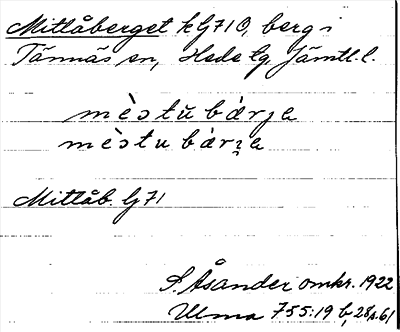 Mittåberget k G71 O, berg i
Tännäs sn, Hede tg. Jämtl. l.
mèstŭ bár̨ɟe
mèstu bárʒe
Mittåb. G71
S. Åsander omkr. 1922
Ulma 755:19 b, 28 s. 61